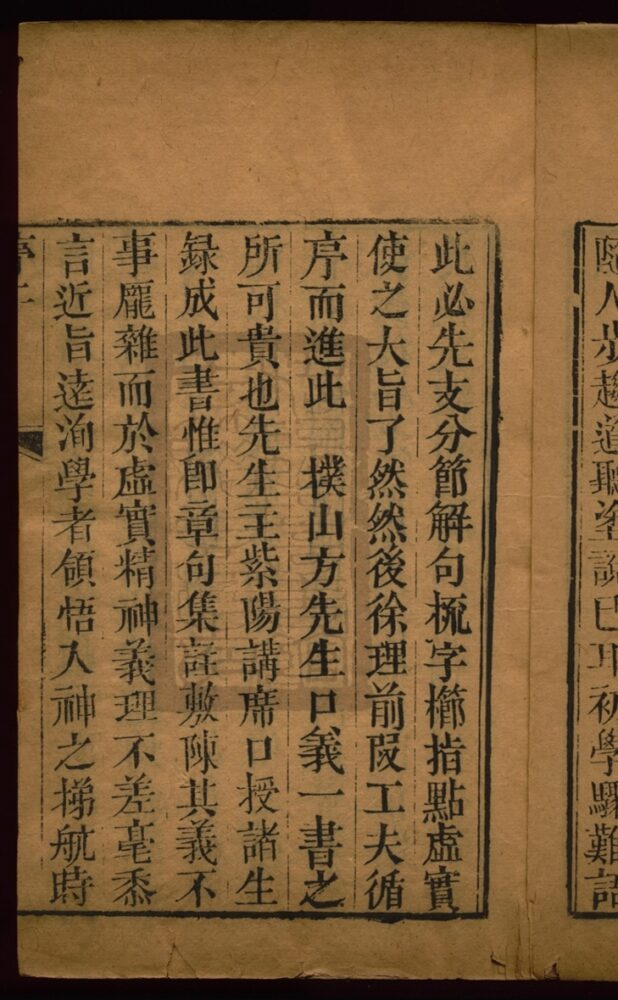 人步趨道聽塗說已耳初學驟難語
此必先支分節解句梳字櫛指點虛實
使之大旨了然然後徐理前叚工夫循
序而進此　樸山方先生口義一書之
所可貴也先生主紫陽講席口授諸生
録成此書惟即章句集註敷陳其義不
事龎雜而於虛實精神義理不差毫黍
言近旨逺洵學者領悟入神之梯航時